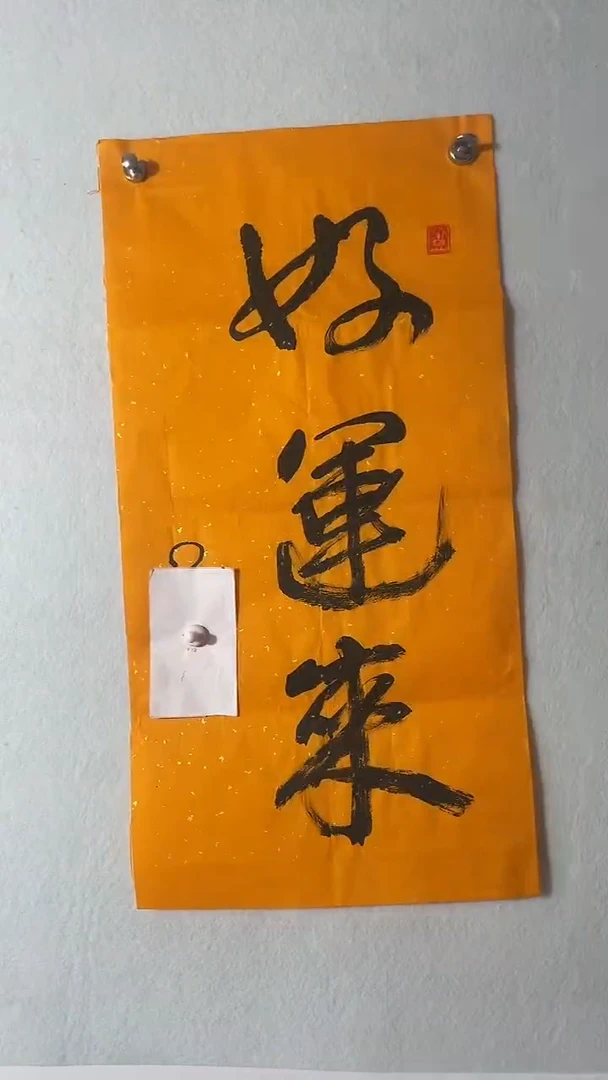 好運來